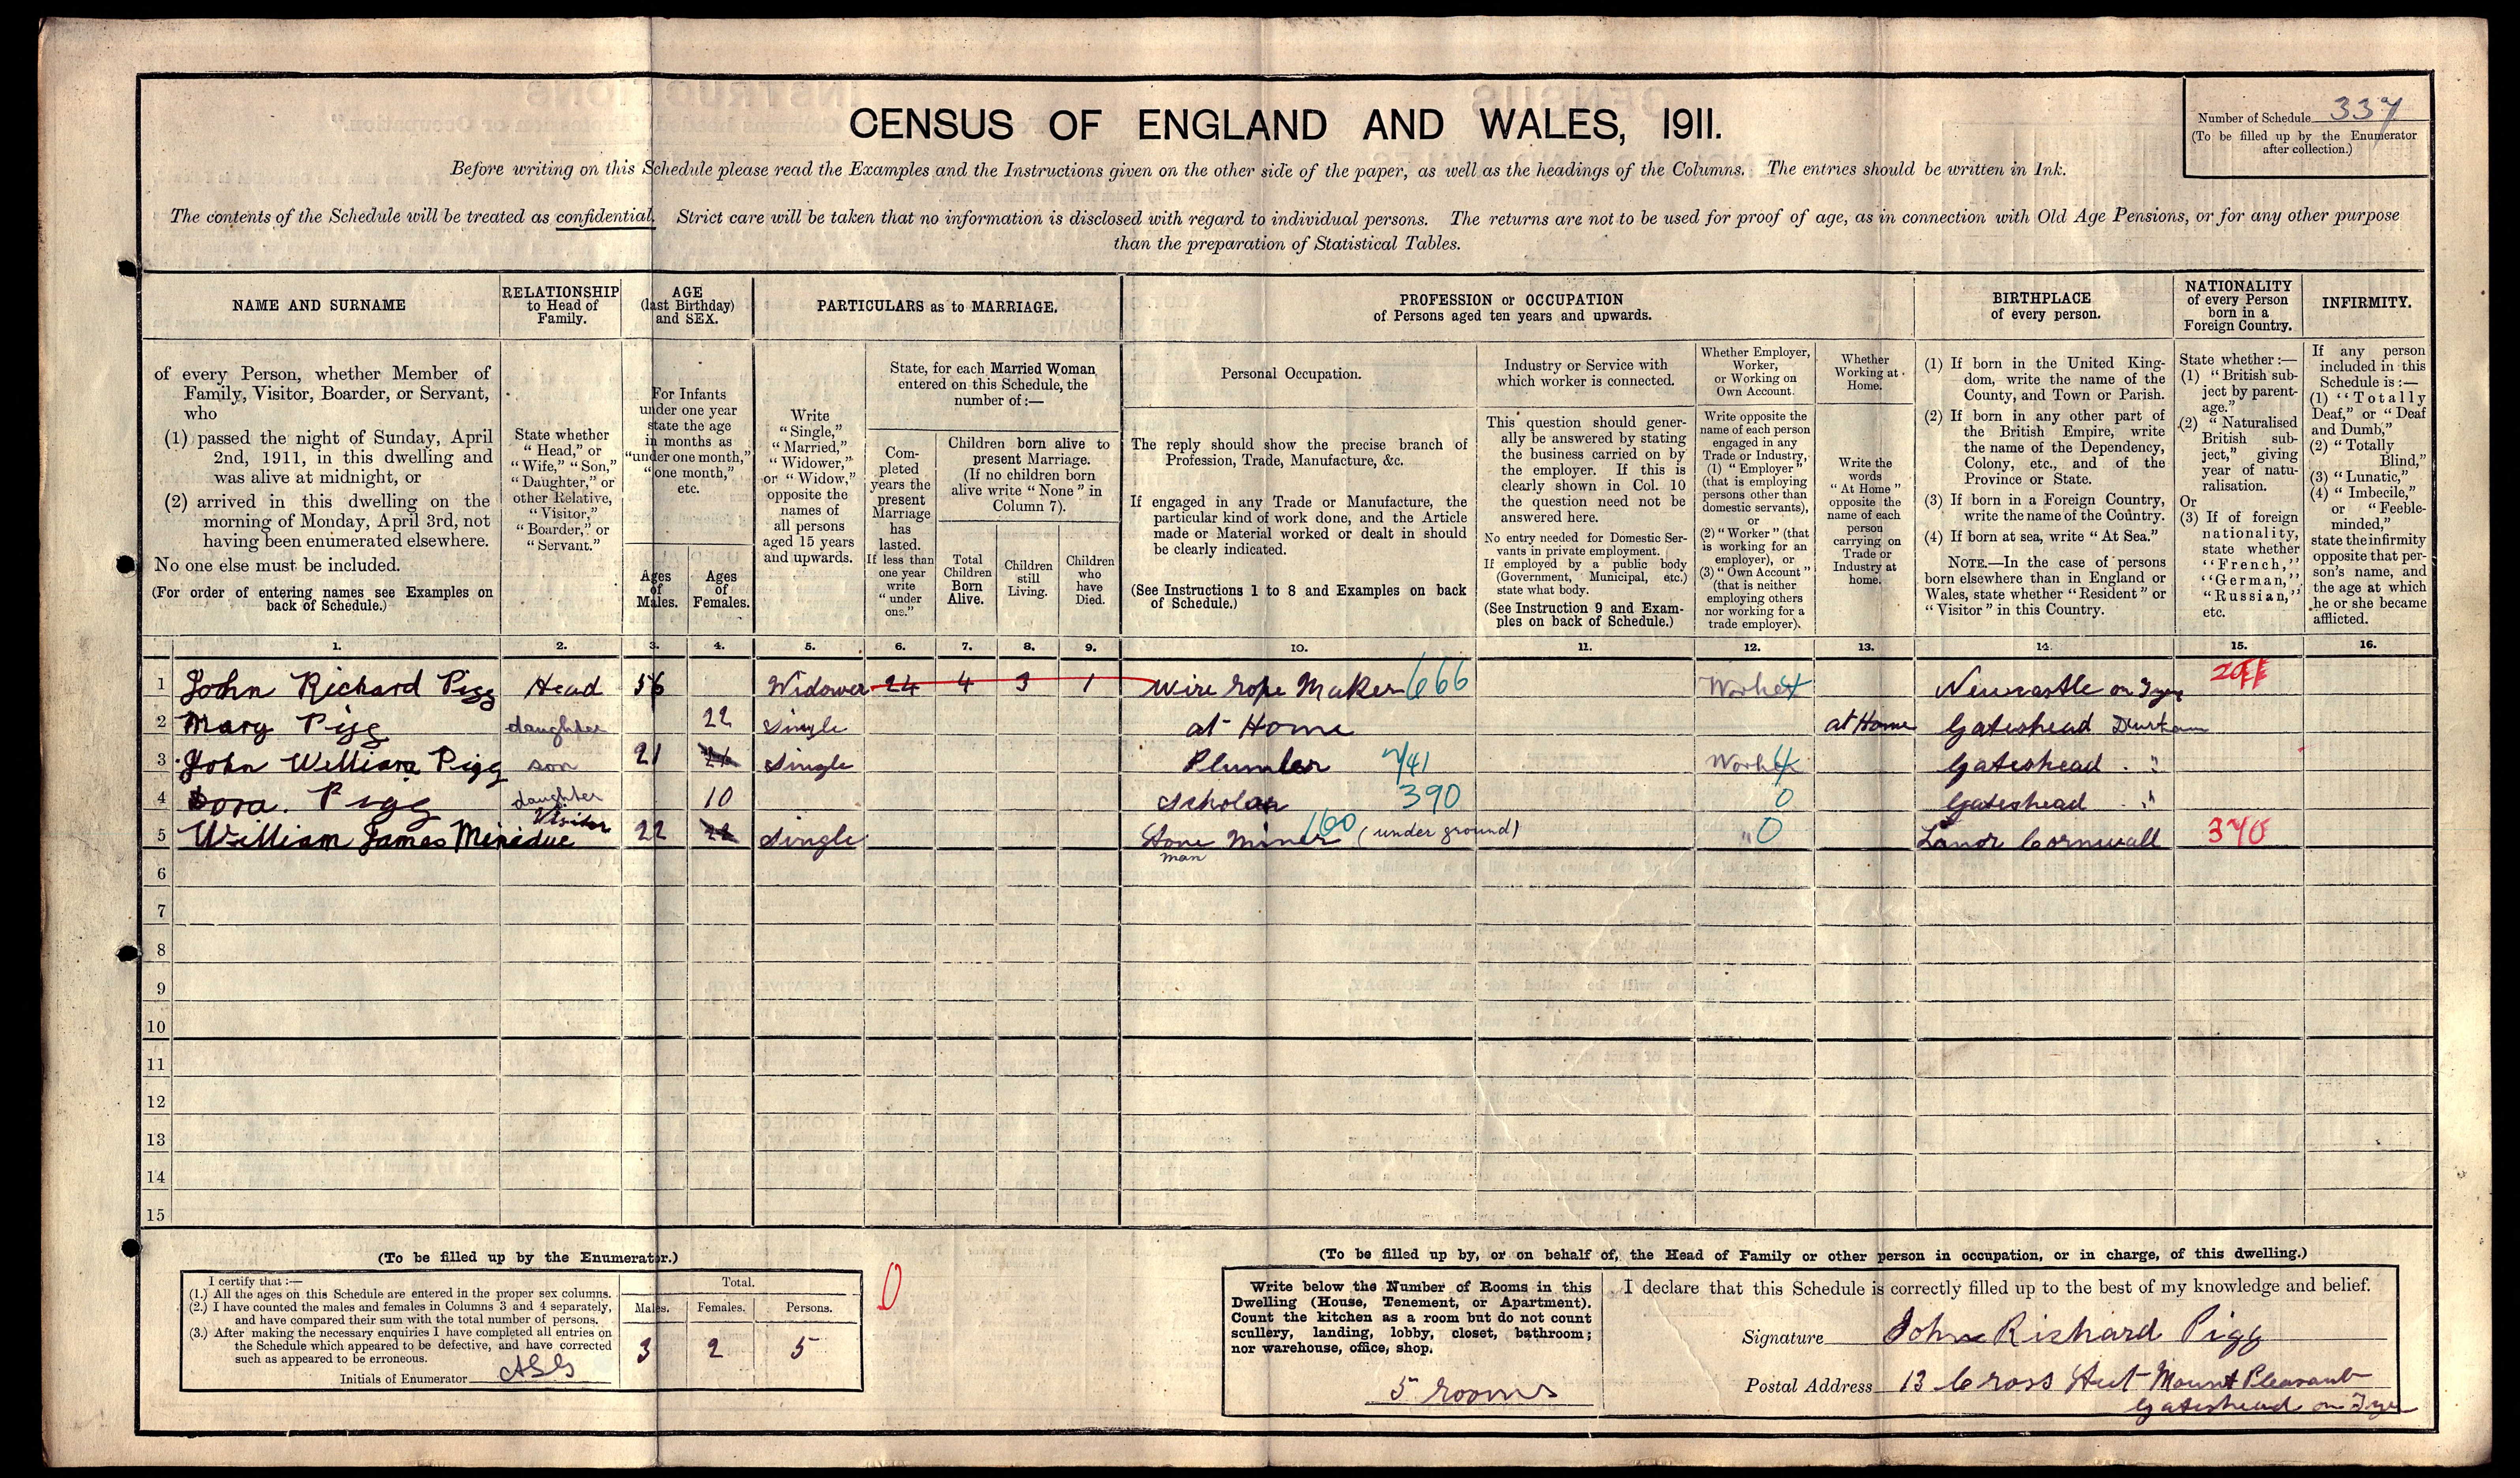 CENSUS OF ENGLAND AND WALES, 1911.
Number of Schedule 337
(To be filled up by the Enumerator
after collection.)
Before writing on this Schedule please read the Examples and the Instructions given on the other side of the paper, as well as the headings of the Columns. The entries should be written in Ink.
The contents of the Schedule will be treated as confidential. Strict care will be taken that no information is disclosed with regard to individual persons. The returns are not to be used for proof of age, as in connection with Old Age Pensions, or for any other purpose
than the preparation of Statistical Tables.
NAME AND SURNAME
of every Person, whether Member of
Family, Visitor, Boarder, or Servant,
who
(1) passed the night of Sunday, April
2nd, 1911, in this dwelling and
was alive at midnight, or
(2) arrived in this dwelling on the
morning of Monday, April 3rd, not
having been enumerated elsewhere.
No one else must be included.
(For order of entering names see Examples on
back of Schedule.)
RELATIONSHIP
to Head of
Family.
State whether
"Head," or
"Wife," "Son,"
"Daughter," or
other Relative,
"Visitor,"
"Boarder," or
"Servant."
AGE
(last Birthday)
and SEX.
For Infants
under one year
state the age
in months as
"under one month,"
"one month,"
etc.
Ages
of
Males.
Ages
of
Females.
PARTICULARS as to MARRIAGE.
Write
"Single,"
"Married,"
"Widower,"
or "Widow,"
opposite the
names of
all persons
aged 15 years
and upwards.
State, for each Married Woman
entered on this Schedule, the
number of:—
Com-
pleted
years the
present
Marriage
has
lasted.
If less than
one year
write
"under
one."
Children born alive to
present Marriage.
(If no children born
alive write "None" in
Column 7).
Total
Children
Born
Alive.
Children
still
Living.
Children
who
have
Died.
PROFESSION or OCCUPATION
of Persons aged ten years and upwards.
Personal Occupation.
The reply should show the precise branch of
Profession, Trade, Manufacture, &c.
If engaged in any Trade or Manufacture, the
particular kind of work done, and the Article
made or Material worked or dealt in should
be clearly indicated.
(See Instructions 1 to 8 and Examples on back
of Schedule.)
Industry or Service with
which worker is connected.
This question should gener-
ally be answered by stating
the business carried on by
the employer. If this is
clearly shown in Col. 10
the question need not be
answered here.
No entry needed for Domestic Ser-
vants in private employment.
If employed by a public body
(Government, Municipal, etc.)
state what body.
(See Instruction 9 and Exam-
ples on back of Schedule.)
Whether Employer,
Worker,
or Working on
Own Account.
Write opposite the
name of each person
engaged in any
Trade or Industry,
(1) "Employer"
(that is employing
persons other than
domestic servants),
or
(2) "Worker" (that
is working for an
employer), or
(3) "Own Account"
(that is neither
employing others
nor working for a
trade employer).
Whether
Working at
Home.
Write the
words
"At Home"
opposite the
name of each
person
carrying on
Trade or
Industry at
home.
BIRTHPLACE
of every person.
(1) If born in the United King-
dom, write the name of the
County, and Town or Parish.
(2) If born in any other part of
the British Empire, write
the name of the Dependency,
Colony, etc., and of the
Province or State.
(3) If born in a Foreign Country,
write the name of the Country.
(4) If born at sea, write "At Sea."
NOTE.—In the case of persons
born elsewhere than in England or
Wales, state whether "Resident" or
"Visitor" in this Country.
NATIONALITY
of every Person
born in a
Foreign Country.
State whether:—
(1) "British sub-
ject by parent-
age."
(2) "Naturalised
British sub-
ject," giving
year of natu-
ralisation.
Or
(3) If of foreign
nationality,
state whether
"French,"
"German,"
"Russian,"
etc.
INFIRMITY.
If any person
included in this
Schedule is:—
(1) "Totally
Deaf," or "Deaf
and Dumb,"
(2) "Totally
Blind,"
(3) "Lunatic,"
(4) "Imbecile,"
or "Feeble-
minded,"
state the infirmity
opposite that per-
son's name, and
the age at which
he or she became
afflicted.
1. 2. 3. 4. 5. 6. 7. 8. 9. 10. 11. 12. 13. 14. 15. 16.
1 John Richard Pigg Head 56 Widower 24 4 3 1 wire rope Maker 666 Worker 4 Newcastle on Tyne
2 Mary Pigg daughter 22 single at Home at Home Gateshead Durham
3 John William Pigg son 21 single Plumber 741 Worker 4 Gateshead "
4 Dora. Pigg daughter 10 scholar 390 0 Gateshead "
5 William James Minidue Visitor 22 22 single Stone Miner 160 (under ground) " 0 Lanor Cornwall 370
man
6
7
8
9
10
11
12
13
14
15
(To be filled up by the Enumerator.)
I certify that:—
(1.) All the ages on this Schedule are entered in the proper sex columns.
(2.) I have counted the males and females in Columns 3 and 4 separately,
and have compared their sum with the total number of persons.
(3.) After making the necessary enquiries I have completed all entries on
the Schedule which appeared to be defective, and have corrected
such as appeared to be erroneous.
Initials of Enumerator
Total.
Males. Females. Persons.
3 2 5
0
(To be filled up by, or on behalf of, the Head of Family or other person in occupation, or in charge, of this dwelling.)
Write below the Number of Rooms in this
Dwelling (House, Tenement, or Apartment).
Count the kitchen as a room but do not count
scullery, landing, lobby, closet, bathroom;
nor warehouse, office, shop.
5 rooms
I declare that this Schedule is correctly filled up to the best of my knowledge and belief.
Signature John Richard Pigg
Postal Address 13 Cross Mount Pleasant
Gateshead on Tyne